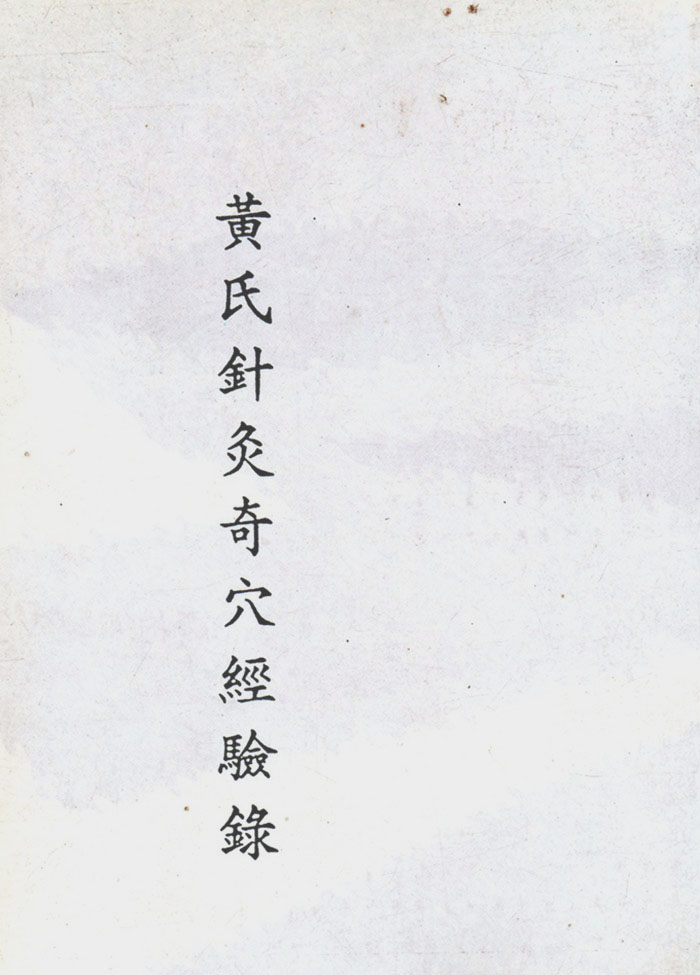 黃氏針灸奇穴經驗錄